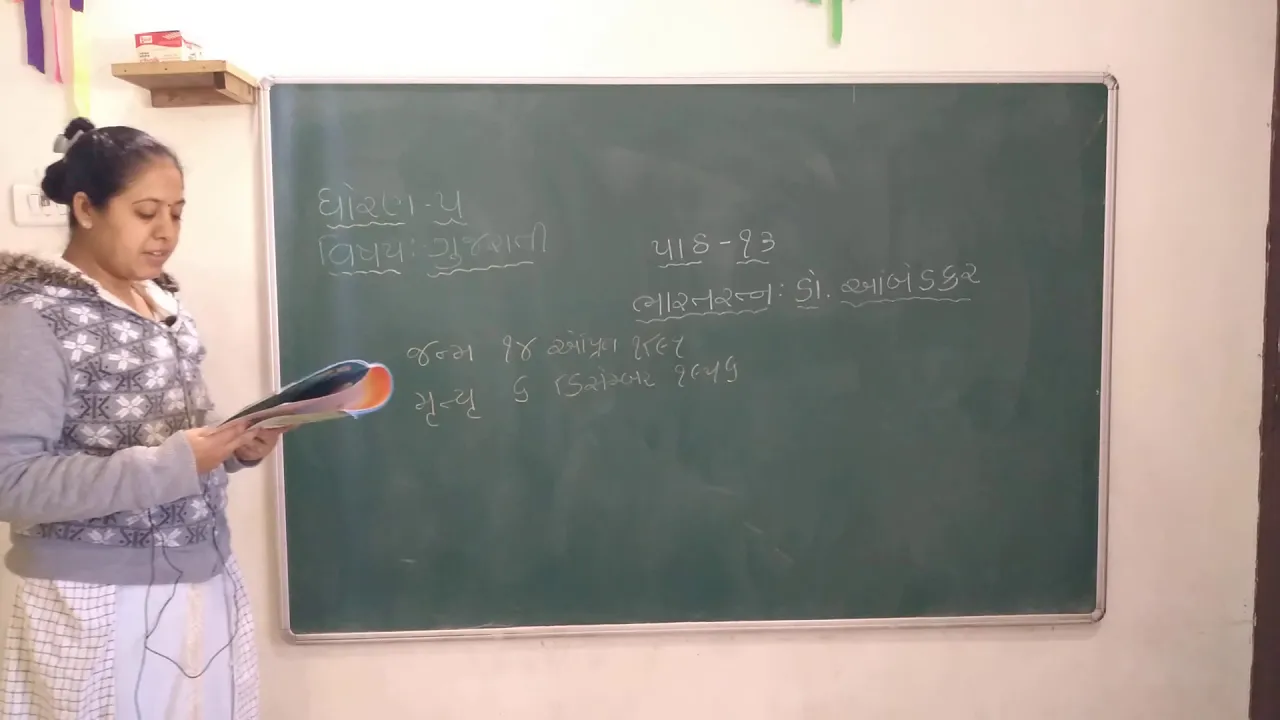 ધોરણ - ૫
વિષય: ગુજરાતી
પાઠ - ૧૩
ભારતરત્ન: ડૉ. આંબેડકર
જન્મ ૧૪ એપ્રિલ ૧૮૯૧
મૃત્યુ ૬ ડિસેમ્બર ૧૯૫૬